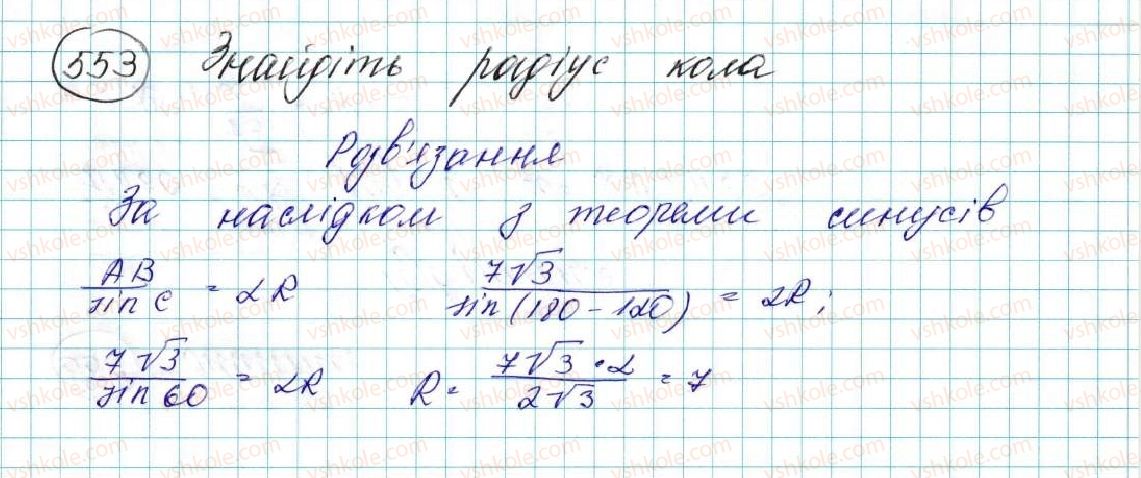 553 Знайдіть радіус кола
Розв'язання
За наслідком з теореми синусів
AB / sin C = 2R   7√3 / sin(180-120) = 2R;
7√3 / sin 60 = 2R   R = 7√3·2 / 2√3 = 7